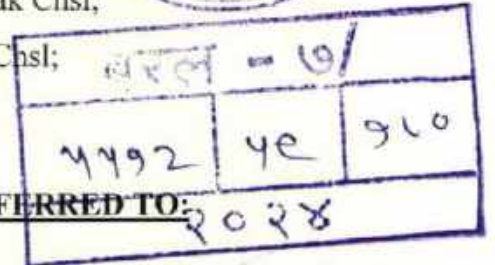 ak Chsl;
Chsl;
बरल - ७/
५५१२ ५९
FERRED TO:
२०२४